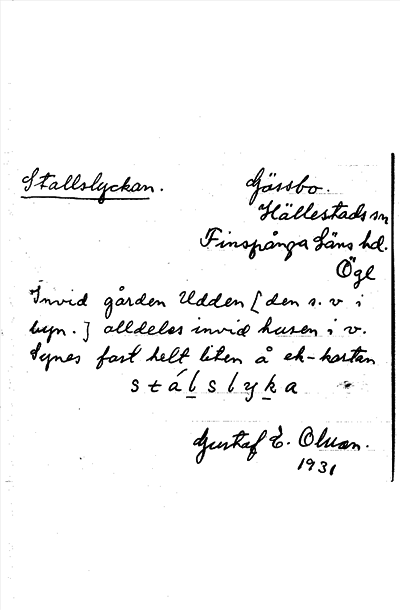 Stallslyckan.
Gössbo.
Hällestads sn
Finspånga Läns hd.
Ögl
Invid gården Udden [den s. v i
byn.] alldeles invid husen i v.
Synes fast helt liten å ek-kartan
stálslyka
Gustaf E. Olsson.
1931